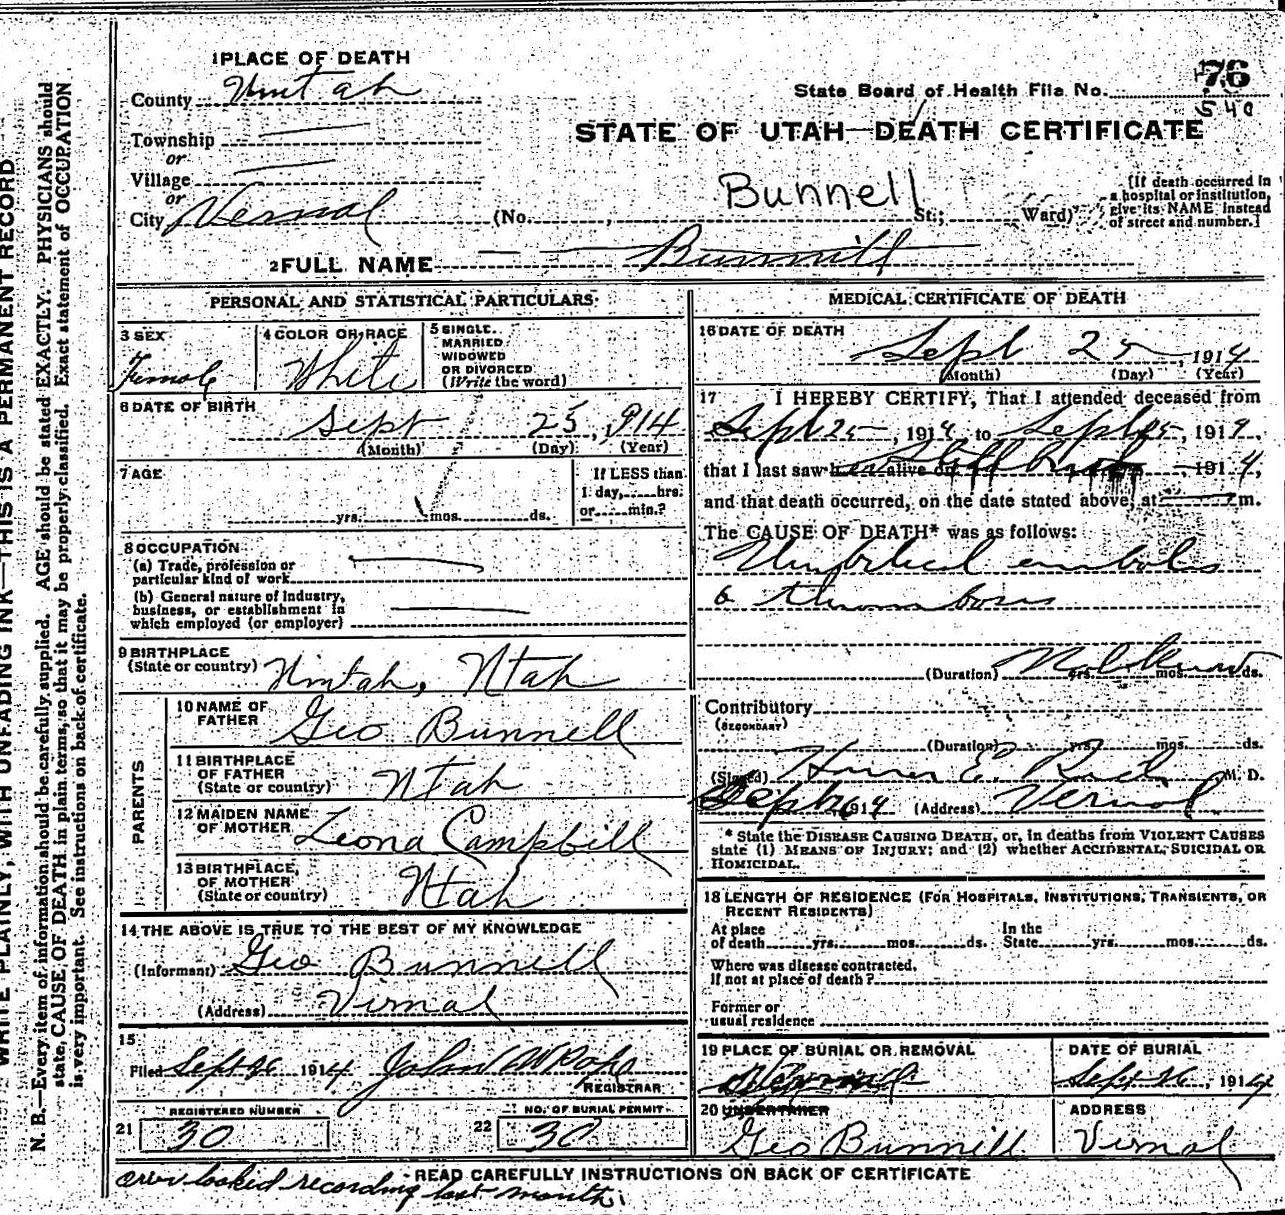 WRITE PLAINLY, WITH UNFADING INK—THIS IS A PERMANENT RECORD
N. B.—Every item of information should be carefully supplied. AGE should be stated EXACTLY. PHYSICIANS should
state CAUSE OF DEATH in plain terms, so that it may be properly classified. Exact statement of OCCUPATION
is very important. See instructions on back of certificate.
1 PLACE OF DEATH
County Uintah
Township
or
Village
or
City Vernal
State Board of Health File No. 76
540
STATE OF UTAH—DEATH CERTIFICATE
Bunnell
(No. , St.; Ward)
[If death occurred in
a hospital or institution,
give its NAME instead
of street and number.]
2 FULL NAME Bunnill
PERSONAL AND STATISTICAL PARTICULARS
3 SEX
Female
4 COLOR OR RACE
White
5 SINGLE.
MARRIED
WIDOWED
OR DIVORCED
(Write the word)
6 DATE OF BIRTH
Sept 25, 914
(Month) (Day) (Year)
7 AGE
yrs. mos. ds.
If LESS than
1 day, hrs.
or min.?
8 OCCUPATION
(a) Trade, profession or
particular kind of work
(b) General nature of industry,
business, or establishment in
which employed (or employer)
9 BIRTHPLACE
(State or country) Uintah, Utah
PARENTS
10 NAME OF
FATHER Geo Bunnell
11 BIRTHPLACE
OF FATHER
(State or country) Utah
12 MAIDEN NAME
OF MOTHER Leona Campbill
13 BIRTHPLACE
OF MOTHER
(State or country) Utah
14 THE ABOVE IS TRUE TO THE BEST OF MY KNOWLEDGE
(Informant) Geo Bunnell
(Address) Virnal
15
Filed Sept 26 1914 John
REGISTRAR
REGISTERED NUMBER
21 30
NO. OF BURIAL PERMIT
22 30
MEDICAL CERTIFICATE OF DEATH
16 DATE OF DEATH
Sept 25, 1914
(Month) (Day) (Year)
17 I HEREBY CERTIFY, That I attended deceased from
Sept 25, 1914 to Sept 25, 1914.
that I last saw h er alive on Still Birth 1914,
and that death occurred, on the date stated above, at m.
The CAUSE OF DEATH* was as follows:
Umbilical embolis
& thrombosis
(Duration) Not known yrs. mos. ds.
Contributory
(SECONDARY)
(Duration) yrs. mos. ds.
(Signed) Homer E. Rich M. D.
Sept 26 1914 (Address) Vernal
* State the DISEASE CAUSING DEATH, or, in deaths from VIOLENT CAUSES
state (1) MEANS OF INJURY; and (2) whether ACCIDENTAL, SUICIDAL OR
HOMICIDAL.
18 LENGTH OF RESIDENCE (FOR HOSPITALS, INSTITUTIONS, TRANSIENTS, OR
RECENT RESIDENTS)
At place
of death yrs. mos. ds. In the
State yrs. mos. ds.
Where was disease contracted,
If not at place of death?
Former or
usual residence
19 PLACE OF BURIAL OR REMOVAL
DATE OF BURIAL
Sept 26, 1914
20 UNDERTAKER
Geo Bunnill
ADDRESS
Virnal
READ CAREFULLY INSTRUCTIONS ON BACK OF CERTIFICATE
over looked recording last month